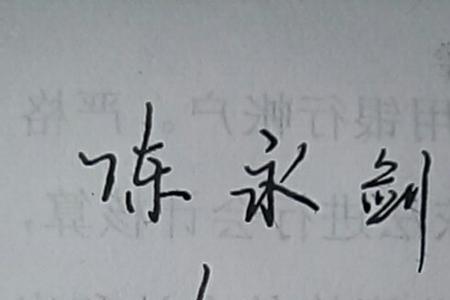 陈永剑